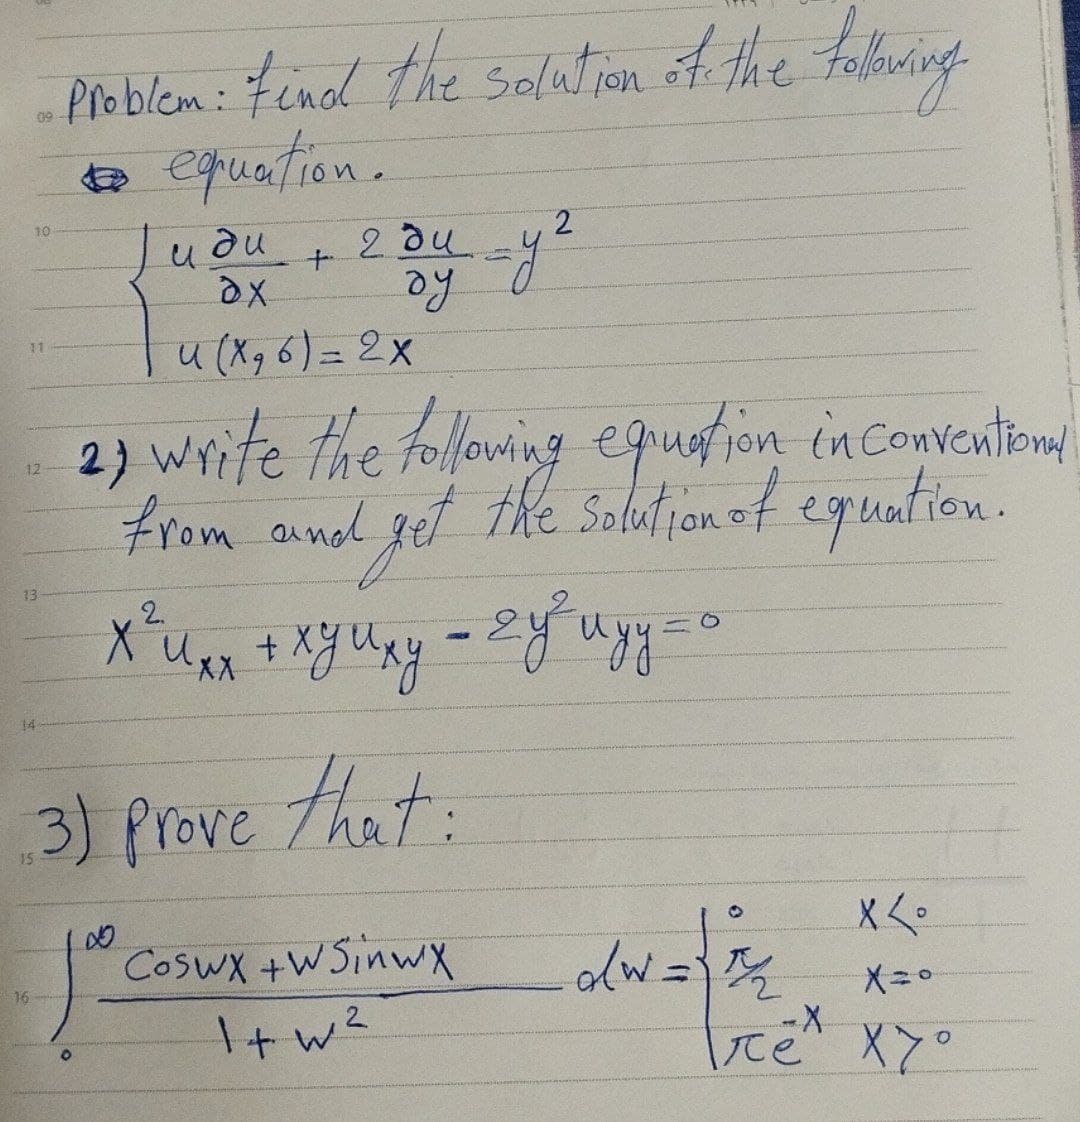 09
Problem: find the solution of the following
equation.
10
u ∂u/∂x + 2 ∂u/∂y = y²
11
u(x, 6) = 2x
12
2) write the following equation in Conventional
from and get the solution of equation.
13
x² u_xx + xy u_xy - 2y² u_yy = 0
14
3) prove that:
15
∫_0^∞ (cos wx + w sin wx)/(1 + w²) dw = { 0 x<0
π/2 x=0
πe^-x x>0
16